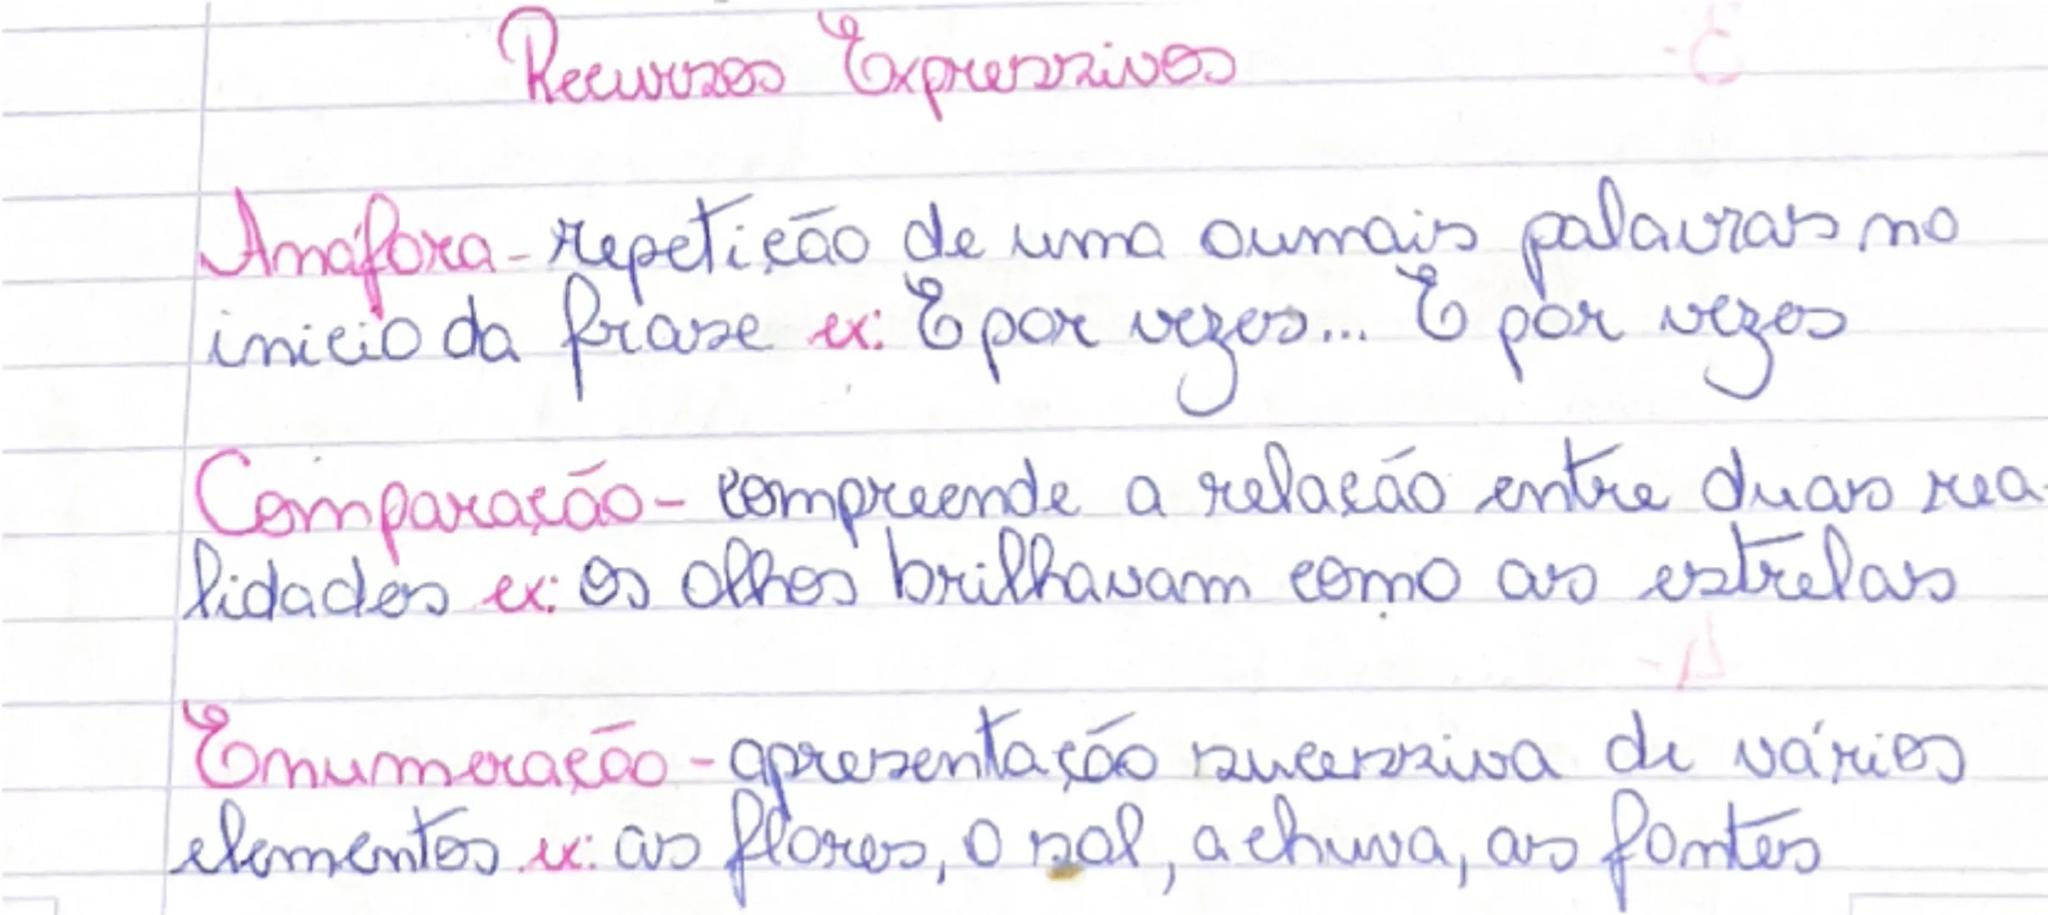 Recursos Expressivos
Anáfora - repetição de uma ou mais palavras no
inicio da frase ex: E por vezes... E por vezes
Comparação - compreende a relação entre duas rea-
lidades ex: os olhos brilhavam como as estrelas
Enumeração - apresentação sucessiva de vários
elementos ex: as flores, o sol, a chuva, as fontes